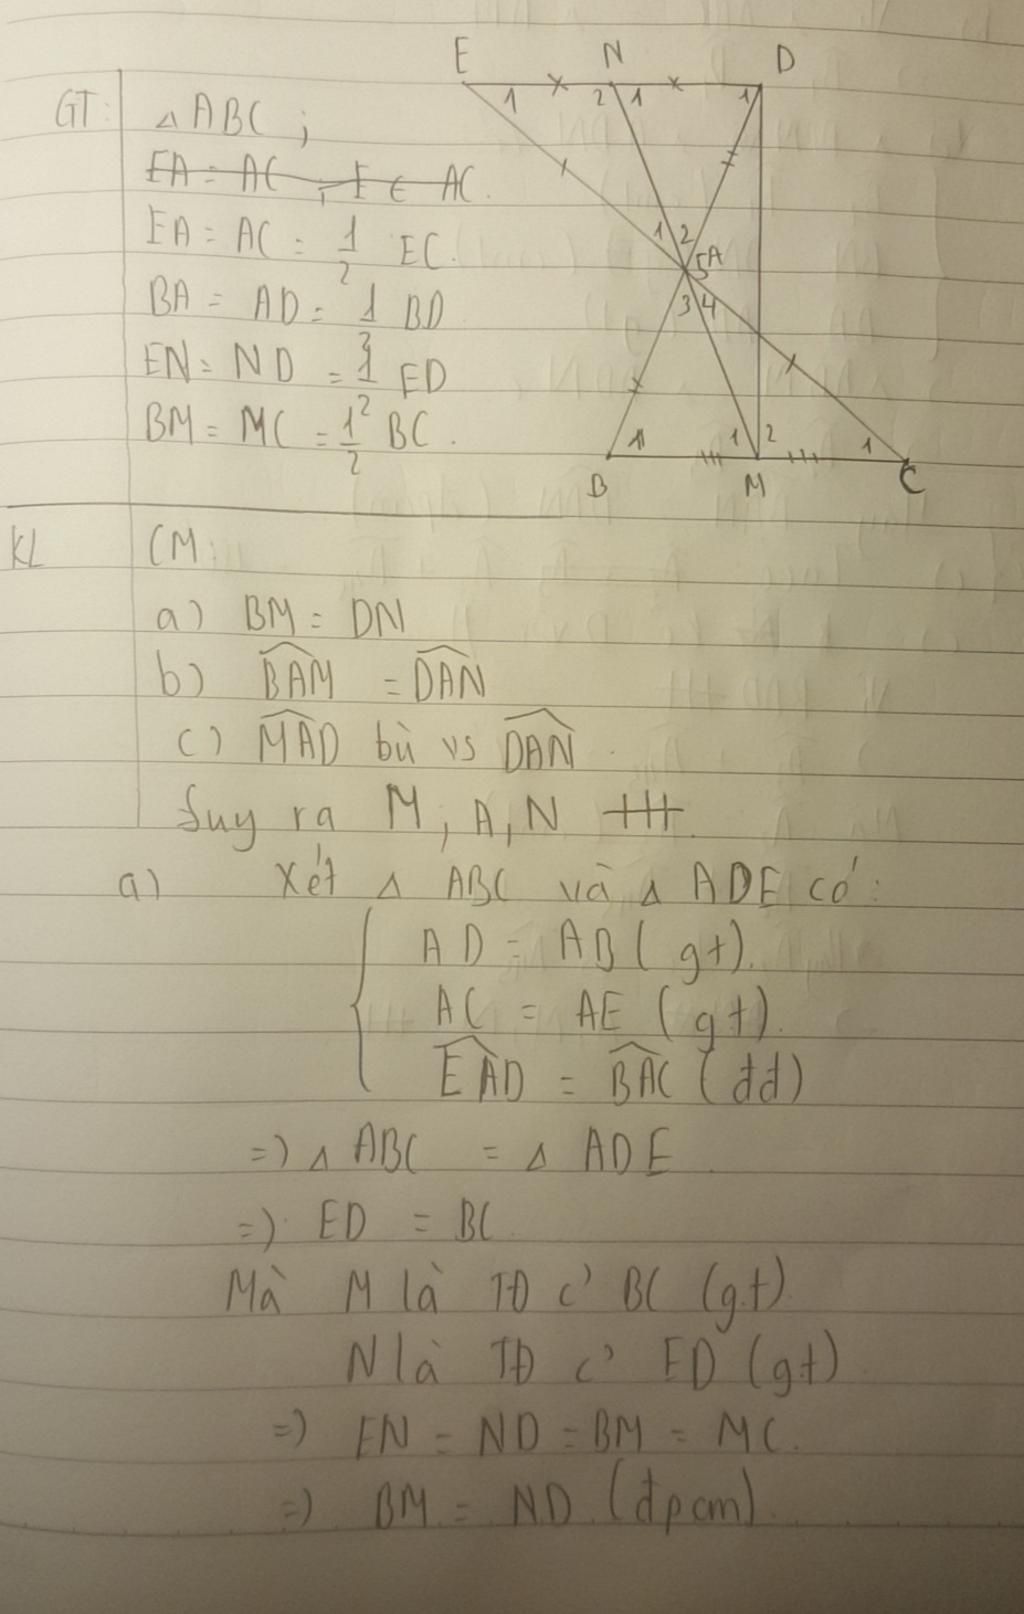 E N D
GT: Δ ABC ;
EA = AC ; E ∈ AC.
EA = AC = 1/2 EC.
BA = AD = 1/2 BD
EN = ND = 1/2 ED
BM = MC = 1/2 BC.
1 2 1 1
1 2
5 A
3 4
1 1 2 1
B M C
KL CM:
a) BM = DN
b) BAM = DAN
c) MAD bù vs DAN.
Suy ra M, A, N
a) Xét Δ ABC và Δ ADE có:
AD = AB (gt).
AC = AE (gt).
EAD = BAC (đđ)
=) Δ ABC = Δ ADE
=) ED = BC
Mà M là TĐ c' BC (gt)
N là TĐ c' ED (gt)
=) EN = ND = BM = MC.
=) BM = ND (đpcm)